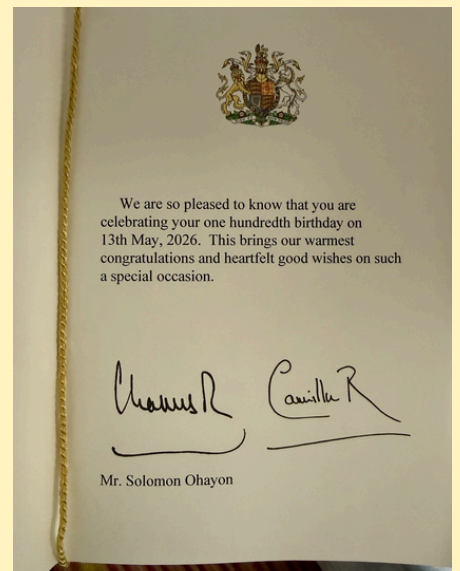 We are so pleased to know that you are
celebrating your one hundredth birthday on
13th May, 2026. This brings our warmest
congratulations and heartfelt good wishes on such
a special occasion.
Charles R Camilla R
Mr. Solomon Ohayon